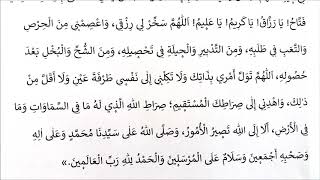 فَتَّاحُ! يَا رَزَّاقُ! يَا كَرِيمُ! يَا عَلِيمُ! اَللّٰهُمَّ سَخِّرْ لِي رِزْقِي، وَاعْصِمْنِي مِنَ الْحِرْصِ
وَالتَّعَبِ فِي طَلَبِهِ، وَمِنَ التَّدْبِيرِ وَالْحِيلَةِ فِي تَحْصِيلِهِ، وَمِنَ الشُّحِّ وَالْبُخْلِ بَعْدَ
حُصُولِهِ، اَللّٰهُمَّ تَوَلَّ أَمْرِي بِذَاتِكَ وَلَا تَكِلْنِي إِلَى نَفْسِي طَرْفَةَ عَيْنٍ وَلَا أَقَلَّ مِنْ
ذٰلِكَ، وَاهْدِنِي إِلَى صِرَاطِكَ الْمُسْتَقِيمِ؛ صِرَاطِ اللهِ الَّذِي لَهُ مَا فِي السَّمَاوَاتِ وَمَا
فِي الْأَرْضِ، أَلَا إِلَى اللهِ تَصِيرُ الْأُمُورُ، وَصَلَّى اللهُ عَلَى سَيِّدِنَا مُحَمَّدٍ وَعَلَى اٰلِهِ
وَصَحْبِهِ أَجْمَعِينَ وَسَلَامٌ عَلَى الْمُرْسَلِينَ وَالْحَمْدُ لِلّٰهِ رَبِّ الْعَالَمِينَ.»